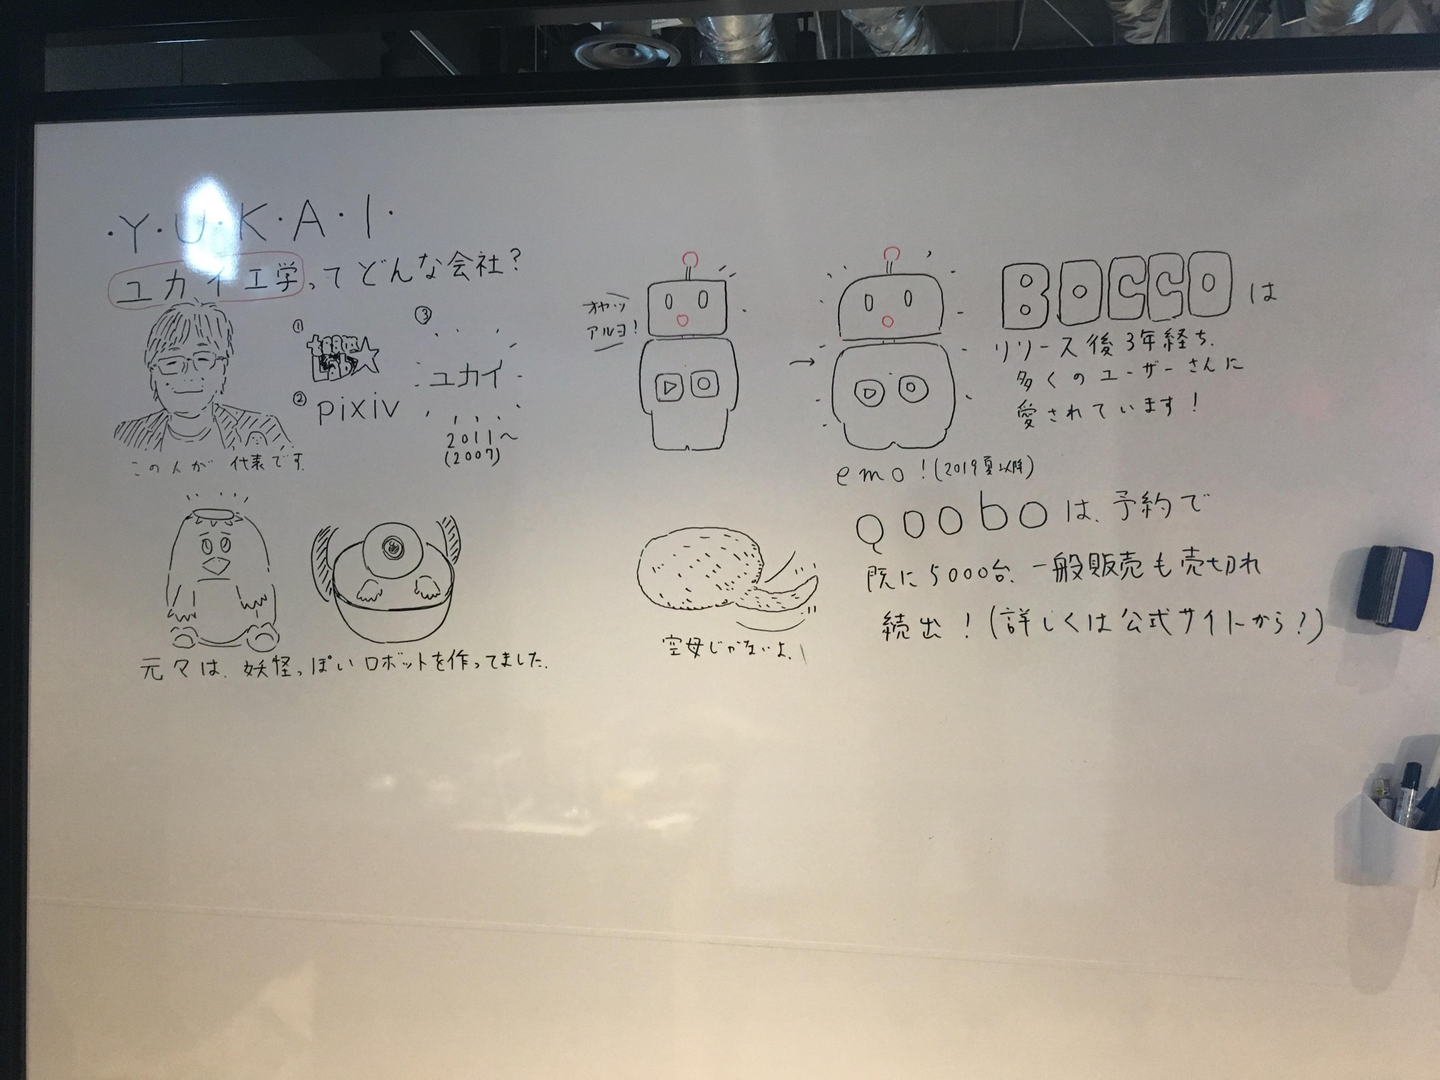 ・Y・U・K・A・I・
ユカイ工学ってどんな会社?
① teamLab☆
② pixiv
③
ユカイ
2011〜
(2007)
この人が代表です。
元々は、妖怪っぽいロボットを作ってました。
オヤツ
アルヨ!
→
BOCCO は
リリース後3年経ち、
多くのユーザーさんに
愛されています!
emo!(2019夏以降)
Qooboは、予約で
既に5000台、一般販売も売切れ
続出!(詳しくは公式サイトから!)
空母じゃないよ、